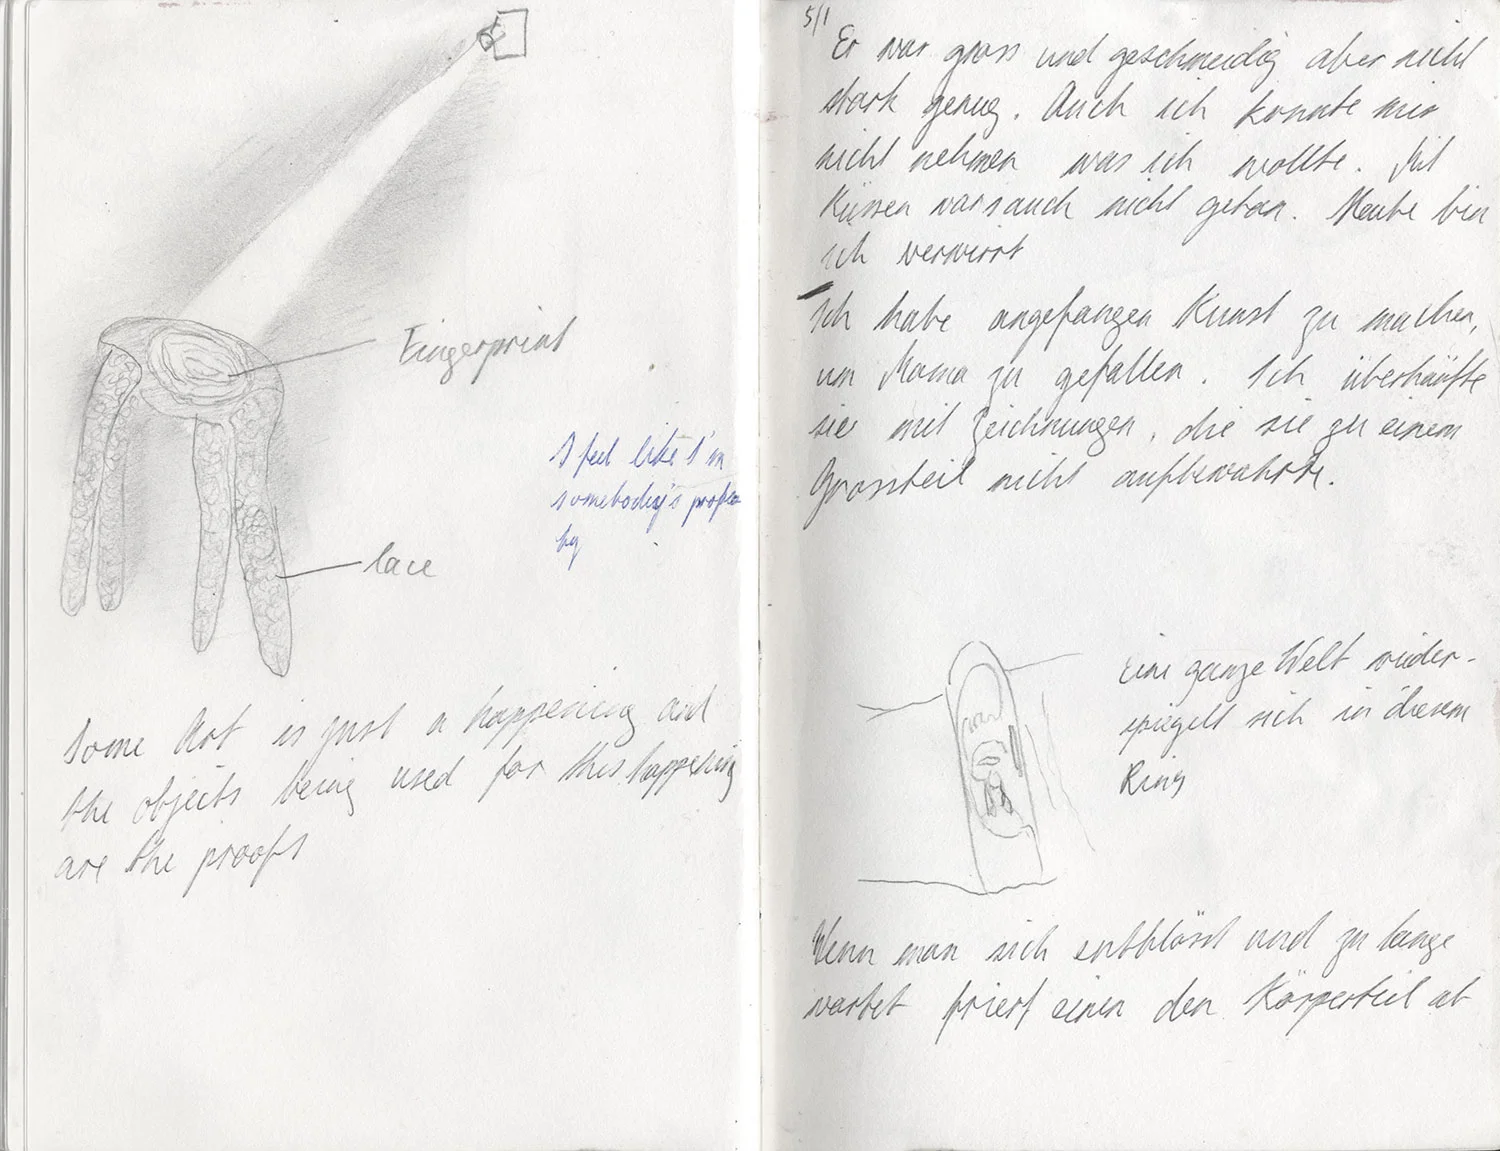 Fingerprint
I feel like I'm
somebody's proper
ty
lace
Some Art is just a happening and
the objects being used for this happening
are the proofs
5/1
Er war gross und geschmeidig aber nicht
stark genug. Auch ich konnte mir
nicht nehmen was ich wollte. Mit
Küssen wars auch nicht getan. Heute bin
ich verwirrt
Ich habe angefangen Kunst zu machen,
um Mama zu gefallen. Ich überhäufte
sie mit Zeichnungen, die sie zu einem
Grossteil nicht aufbewahrte.
Eine ganze Welt wieder-
spiegelt sich in diesem
Ring
Wenn man sich entblösst und zu lange
wartet friert einen den Körperteil ab